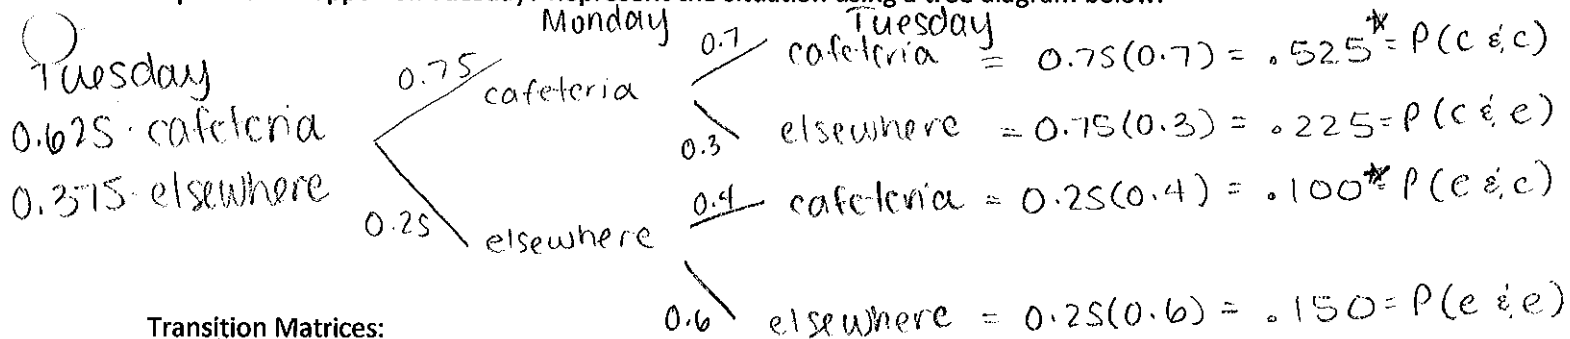 Monday Tuesday
Tuesday
0.625 · cafeteria
0.375 · elsewhere
0.75 cafeteria
0.7 cafeteria = 0.75(0.7) = .525* = P(c & c)
0.3 elsewhere = 0.75(0.3) = .225 = P(c & e)
0.25 elsewhere
0.4 cafeteria = 0.25(0.4) = .100* = P(e & c)
0.6 elsewhere = 0.25(0.6) = .150 = P(e & e)
Transition Matrices: